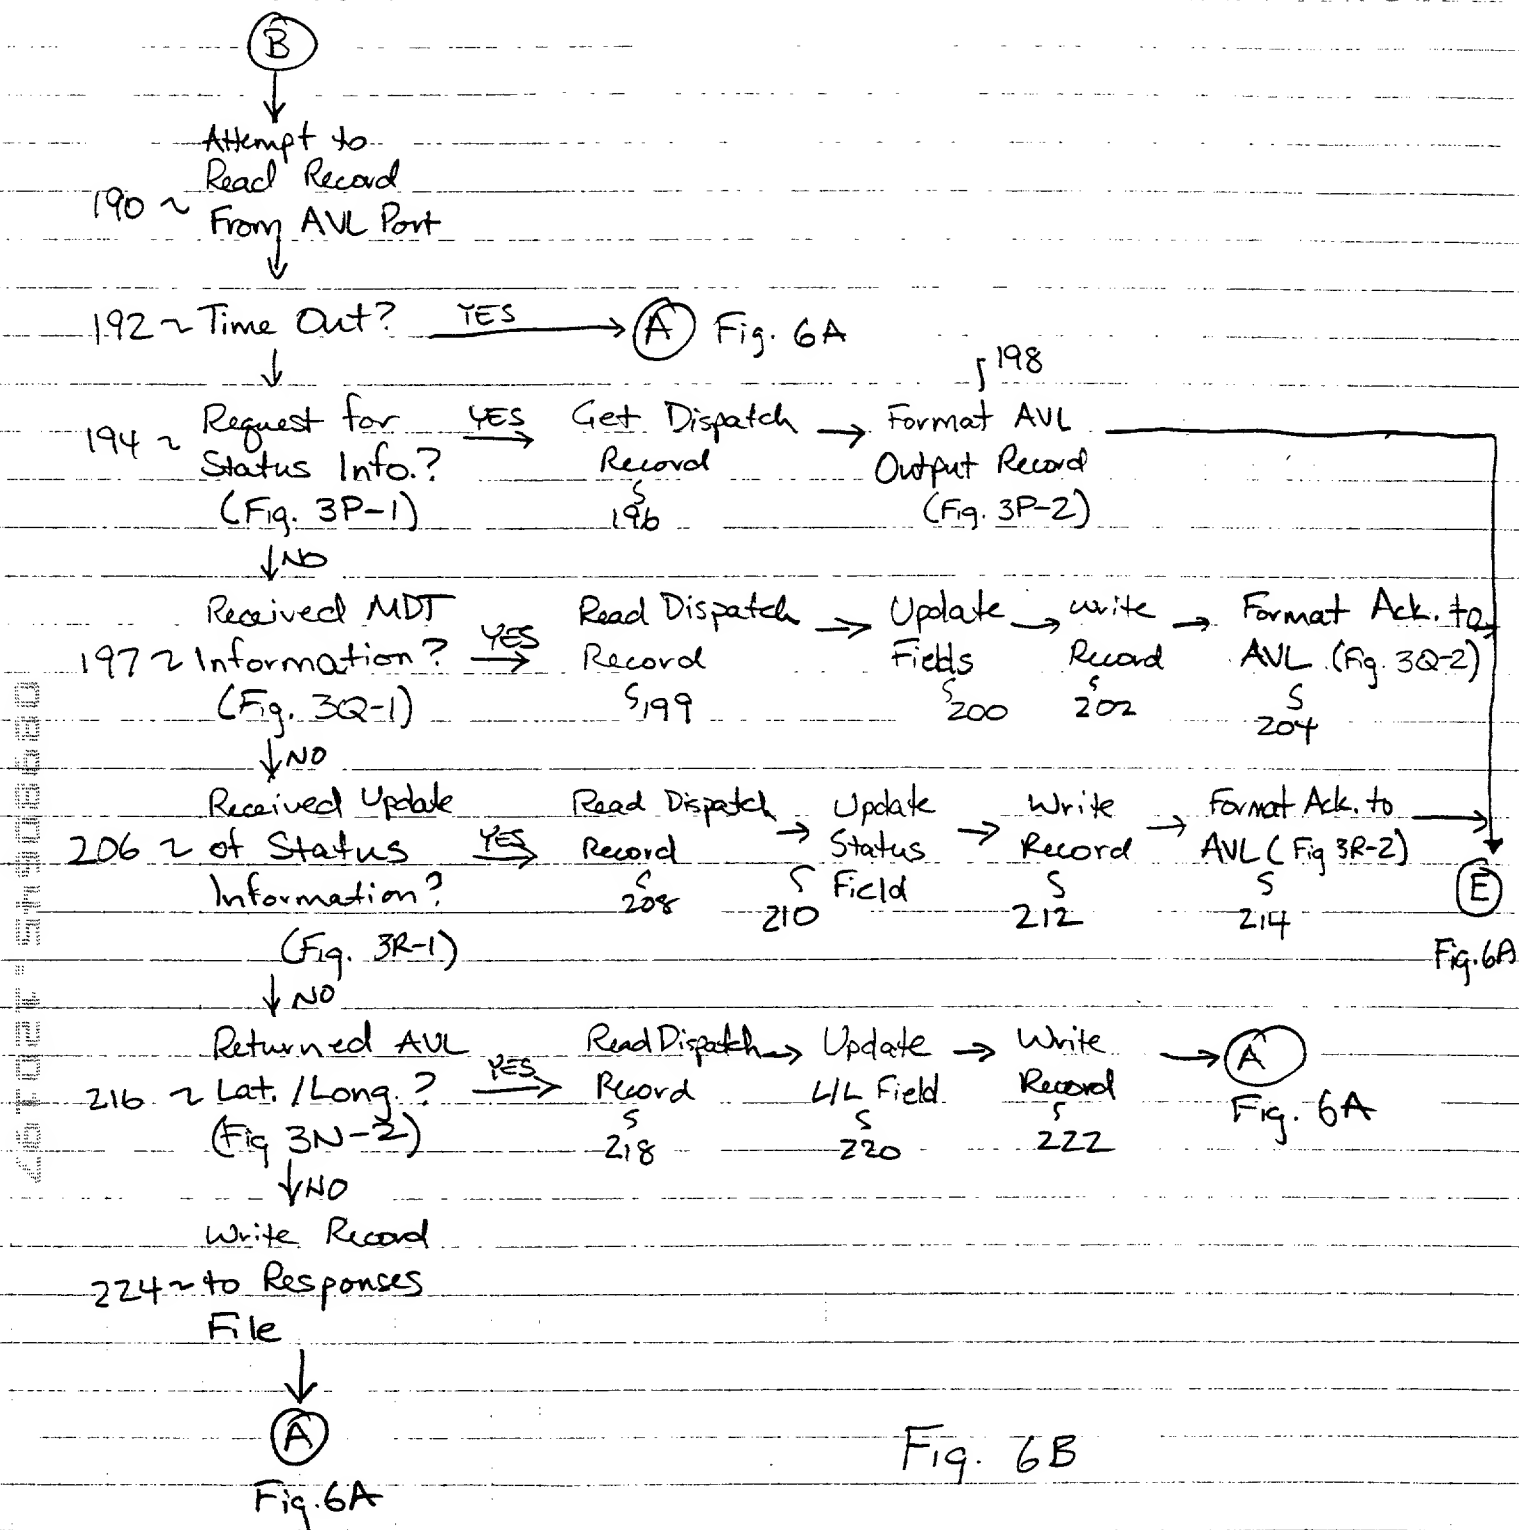 B
Attempt to
Read Record
190 ~ From AVL Port
192 ~ Time Out? YES A Fig. 6A
198
194 ~ Request for Status Info.? (Fig. 3P-1) YES
Get Dispatch
Record
196
Format AVL
Output Record
(Fig. 3P-2)
NO
197 ~ Received MDT
Information?
(Fig. 3Q-1)
YES
Read Dispatch
Record
199
Update
Fields
200
Write
Record
202
Format Ack. to
AVL (Fig. 3Q-2)
204
NO
Received Update
206 ~ of Status
Information?
(Fig. 3R-1)
YES
Read Dispatch
Record
208
Update
Status
Field
210
Write
Record
212
Format Ack. to
AVL (Fig 3R-2)
214
E
Fig. 6A
NO
Returned AVL
216 ~ Lat. / Long.?
(Fig 3N-2)
YES
Read Dispatch
Record
218
Update
L/L Field
220
Write
Record
222
A
Fig. 6A
NO
Write Record
224 ~ to Responses
File
A
Fig. 6A
Fig. 6B